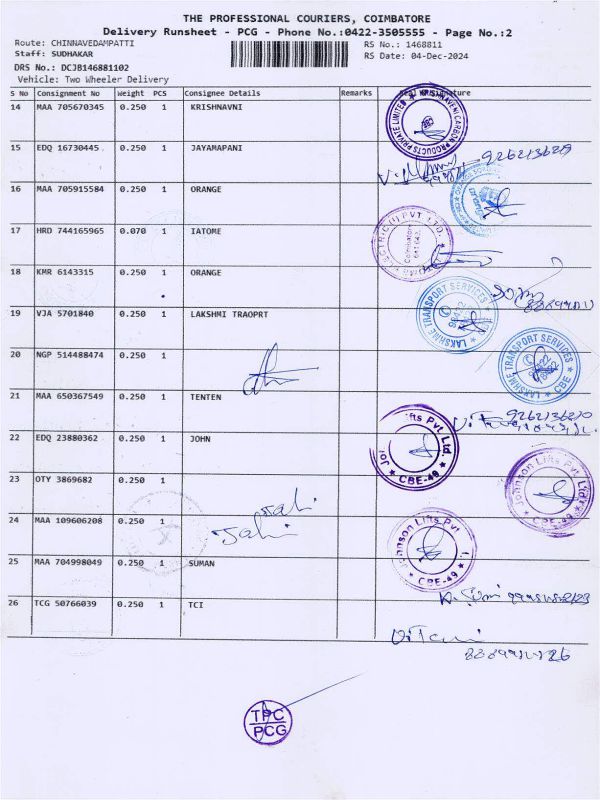 THE PROFESSIONAL COURIERS, COIMBATORE
Delivery Runsheet - PCG - Phone No.:0422-3505555 - Page No.:2
Route: CHINNAVEDAMPATTI
Staff: SUDHAKAR
RS No.: 1468811
DRS No.: DCJB146881102
RS Date: 04-Dec-2024
Vehicle: Two Wheeler Delivery
S No Consignment No Weight PCS Consignee Details Remarks Signature
14 MAA 705670345 0.250 1 KRISHNAVNI
15 EDQ 16730445 0.250 1 JAYAMAPANI
16 MAA 705915584 0.250 1 ORANGE
17 HRD 744165965 0.070 1 IATOME
18 KMR 6143315 0.250 1 ORANGE
19 VJA 5701840 0.250 1 LAKSHMI TRAOPRT
LAKSHME TRANSPORT SERVICES
20 NGP 514488474 0.250 1
LAKSHME TRANSPORT SERVICES CBE
21 MAA 650367549 0.250 1 TENTEN
22 EDQ 23880362 0.250 1 JOHN
Lifts Pvt Ltd. CBE-49
23 OTY 3869682 0.250 1
Johnson Lifts Pvt Ltd. CBE-49
24 MAA 109606208 0.250 1
Johnson Lifts Pvt CBE-49
25 MAA 704998049 0.250 1 SUMAN
26 TCG 50766039 0.250 1 TCI
TPC
PCG